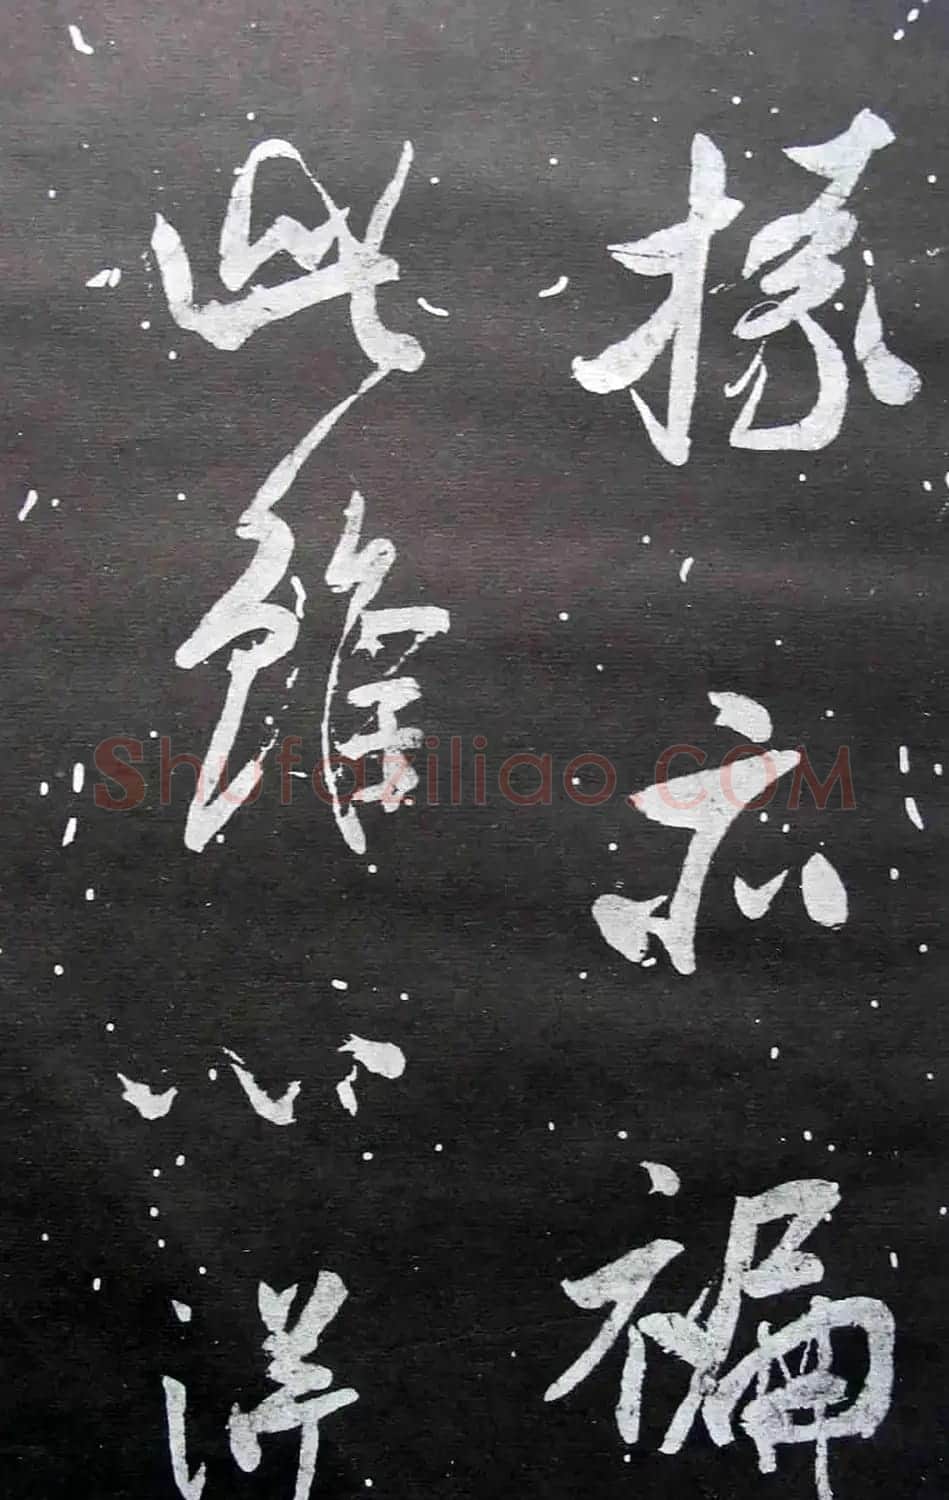 亦褊
此雖小詳
Shufaziliao.COM